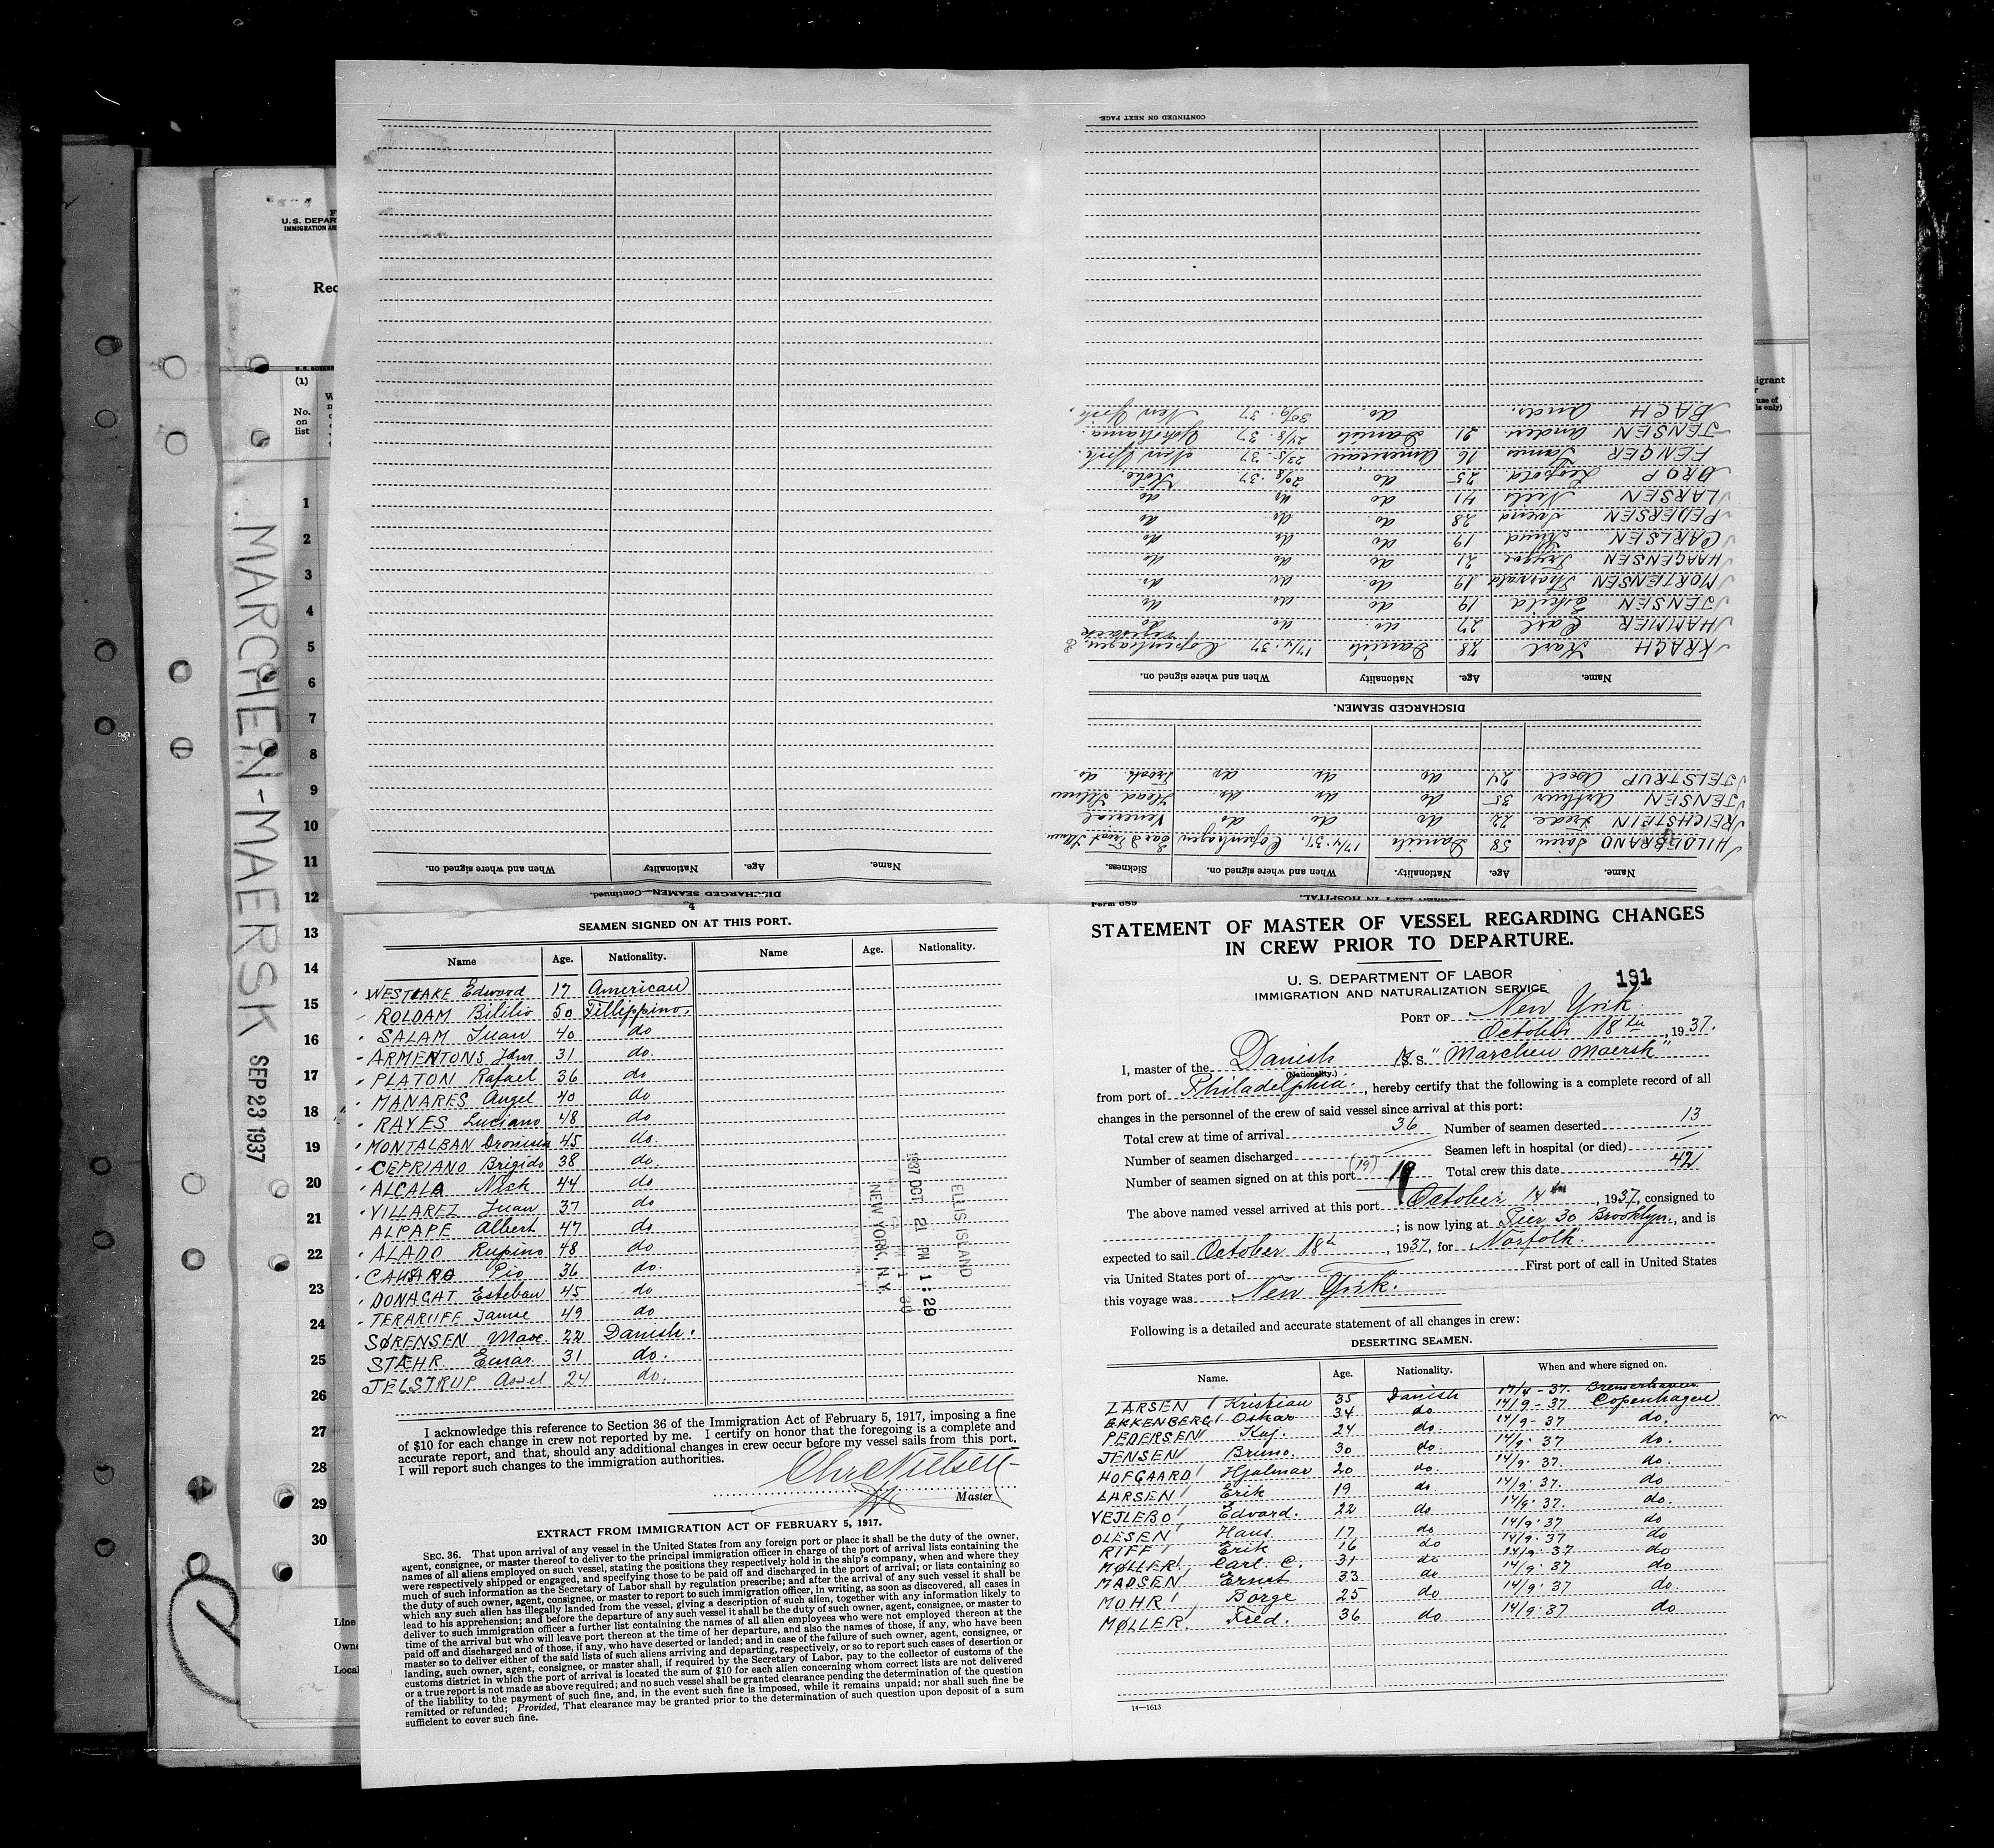 STATEMENT OF MASTER OF VESSEL REGARDING CHANGES
IN CREW PRIOR TO DEPARTURE.
U. S. DEPARTMENT OF LABOR
IMMIGRATION AND NATURALIZATION SERVICE
191
PORT OF New York
October 18th, 1937.
I, master of the Danish S. S. "Marchen Maersk"
(Nationality.)
from port of Philadelphia., hereby certify that the following is a complete record of all
changes in the personnel of the crew of said vessel since arrival at this port:
Total crew at time of arrival 36 Number of seamen deserted 13
Number of seamen discharged — Seamen left in hospital (or died) —
Number of seamen signed on at this port (19) 19 Total crew this date 42
The above named vessel arrived at this port October 14th, 1937, consigned to
; is now lying at Pier 30 Brooklyn, and is
expected to sail October 18th, 1937, for Norfolk.
via United States port of First port of call in United States
this voyage was New York.
Following is a detailed and accurate statement of all changes in crew:
DESERTING SEAMEN.
Name. Age. Nationality. When and where signed on.
17/4-37. Bremerhaven
LARSEN Kristian 35 Danish 14/9-37 Copenhagen
EKKENBERG Oskar 34 do 14/9-37 do.
PEDERSEN Kaj. 24 do. 14/9.37 do.
JENSEN Bruno. 30 do. 14/9.37. do.
HOFGAARD Hjalmar 20 do. 14/9.37. do
LARSEN Erik 19 do 14/9.37. do.
VEJLEBO Edvard. 22 do. 14/9.37 do
OLESEN Hans 17 do 14/9.37 do
RIFF Erik 16 do 14/9.37 do
MØLLER Carl. C. 31 do 14/9.37 do
MADSEN Ernst 33 do 14/9.37 do
MOHR Børge 25 do 14/9.37 do
MØLLER Fred. 36 do
14—1613
4
SEAMEN SIGNED ON AT THIS PORT.
Name Age. Nationality. Name Age. Nationality.
WESTLAKE Edward 17 American
ROLDAM Bililio 50 Fillippino.
SALAM Juan 40 do
ARMENTONS John 31 do.
PLATON Rafael 36 do
MANARES Angel 40 do
RAYES Luciano 48 do
MONTALBAN 45 do.
CEPRIANO Brigido 38 do.
ALCALA Nick 44 do
VILLAREZ Juan 37 do
ALPAPE Albert 47 do
ALADO Rupino 48 do
Pio 36 do.
DONAGAT Esteban 45 do
49 do
SØRENSEN 22 Danish.
STÆHR Einar 31 do.
JELSTRUP Axel 24 do.
ELLIS ISLAND
1937 OCT 21 PM 1:29
NEW YORK, N.Y.
I acknowledge this reference to Section 36 of the Immigration Act of February 5, 1917, imposing a fine
of $10 for each change in crew not reported by me. I certify on honor that the foregoing is a complete and
accurate report, and that, should any additional changes in crew occur before my vessel sails from this port,
I will report such changes to the immigration authorities.
Chr Nielsen
Master
EXTRACT FROM IMMIGRATION ACT OF FEBRUARY 5, 1917.
SEC. 36. That upon arrival of any vessel in the United States from any foreign port or place it shall be the duty of the owner,
agent, consignee, or master thereof to deliver to the principal immigration officer in charge of the port of arrival lists containing the
names of all aliens employed on such vessel, stating the positions they respectively hold in the ship's company, when and where they
were respectively shipped or engaged, and specifying those to be paid off and discharged in the port of arrival; or lists containing so
much of such information as the Secretary of Labor shall by regulation prescribe; and after the arrival of any such vessel it shall be
the duty of such owner, agent, consignee, or master to report to such immigration officer, in writing, as soon as discovered, all cases in
which any such alien has illegally landed from the vessel, giving a description of such alien, together with any information likely to
lead to his apprehension; and before the departure of any such vessel it shall be the duty of such owner, agent, consignee, or master to
deliver to such immigration officer a further list containing the names of all alien employees who were not employed thereon at the
time of the arrival but who will leave port thereon at the time of her departure, and also the names of those, if any, who have been
paid off and discharged and of those, if any, who have deserted or landed; and in case of the failure of such owner, agent, consignee, or
master so to deliver either of the said lists of such aliens arriving and departing, respectively, or so to report such cases of desertion or
landing, such owner, agent, consignee, or master shall, if required by the Secretary of Labor, pay to the collector of customs of the
customs district in which the port of arrival is located the sum of $10 for each alien concerning whom correct lists are not delivered
or a true report is not made as above required; and no such vessel shall be granted clearance pending the determination of the question
of the liability to the payment of such fine, and, in the event such fine is imposed, while it remains unpaid; nor shall such fine be
remitted or refunded; Provided, That clearance may be granted prior to the determination of such question upon deposit of a sum
sufficient to cover such fine.
SEAMEN LEFT IN HOSPITAL.
Name. Age. Nationality. When and where signed on. Sickness.
HILDEBRAND Søren 58 Danish 17/4.37. Copenhagen
REICHSTEIN Frede 22 do do do Venerial
JENSEN Arthur 35 do do do. Head
JELSTRUP Axel 24 do do do
DISCHARGED SEAMEN.
Name. Age. Nationality When and where signed on.
KRACH Karl 28 Danish 17/4.37 Copenhagen
HAMMER Carl 27 do. do do
JENSEN Eskild 19 do do do
MORTENSEN Thorvald 19 do do do.
HAAGENSEN Trygve 21 do do do
CARLSEN Knud 19 do do do
PEDERSEN Svend 28 do. do. do
LARSEN Niels 41 do do do
DROP Leopold 25 do. 20/8.37. Kobe.
FENGER James 16 American 23/5.37 New York.
JENSEN Anders 21 Danish 24/8.37 Yokohama.
BACH Ands. do. 30/9.37 New York.
CONTINUED ON NEXT PAGE.
DISCHARGED SEAMEN—Continued.
Name. Age. Nationality When and where signed on.
MARCHEN-MAERSK SEP 23 1937
U. S. DEPAR
IMMIGRATION AN
Rec
(1)
No.
on
list
1
2
3
4
5
6
7
8
9
10
11
12
13
14
15
16
17
18
19
20
21
22
23
24
25
26
27
28
29
30
Line
Owne
Local